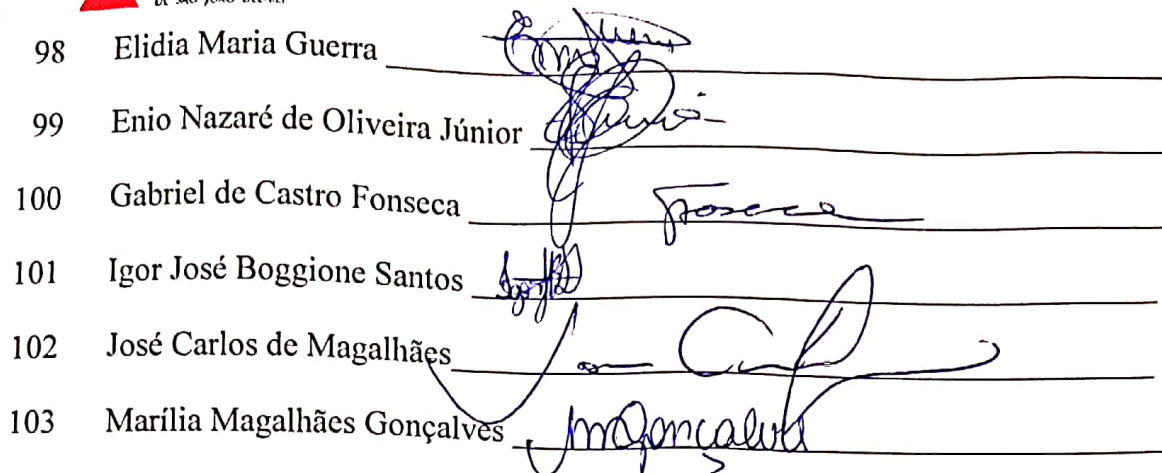 DE SÃO JOÃO DEL-REI
98 Elidia Maria Guerra
99 Enio Nazaré de Oliveira Júnior
100 Gabriel de Castro Fonseca Fonseca
101 Igor José Boggione Santos
102 José Carlos de Magalhães
103 Marília Magalhães Gonçalves MGonçalves